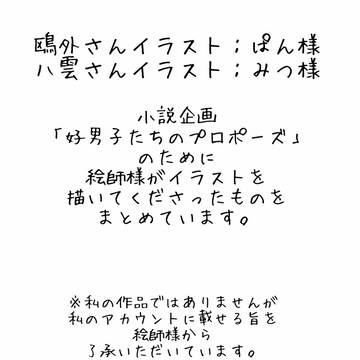 鴎外さんイラスト；ぱん様
八雲さんイラスト；みつ様
小説企画
「好男子たちのプロポーズ」
のために
絵師様がイラストを
描いてくださったものを
まとめています。
※私の作品ではありませんが
私のアカウントに載せる旨を
絵師様から
了承いただいています。